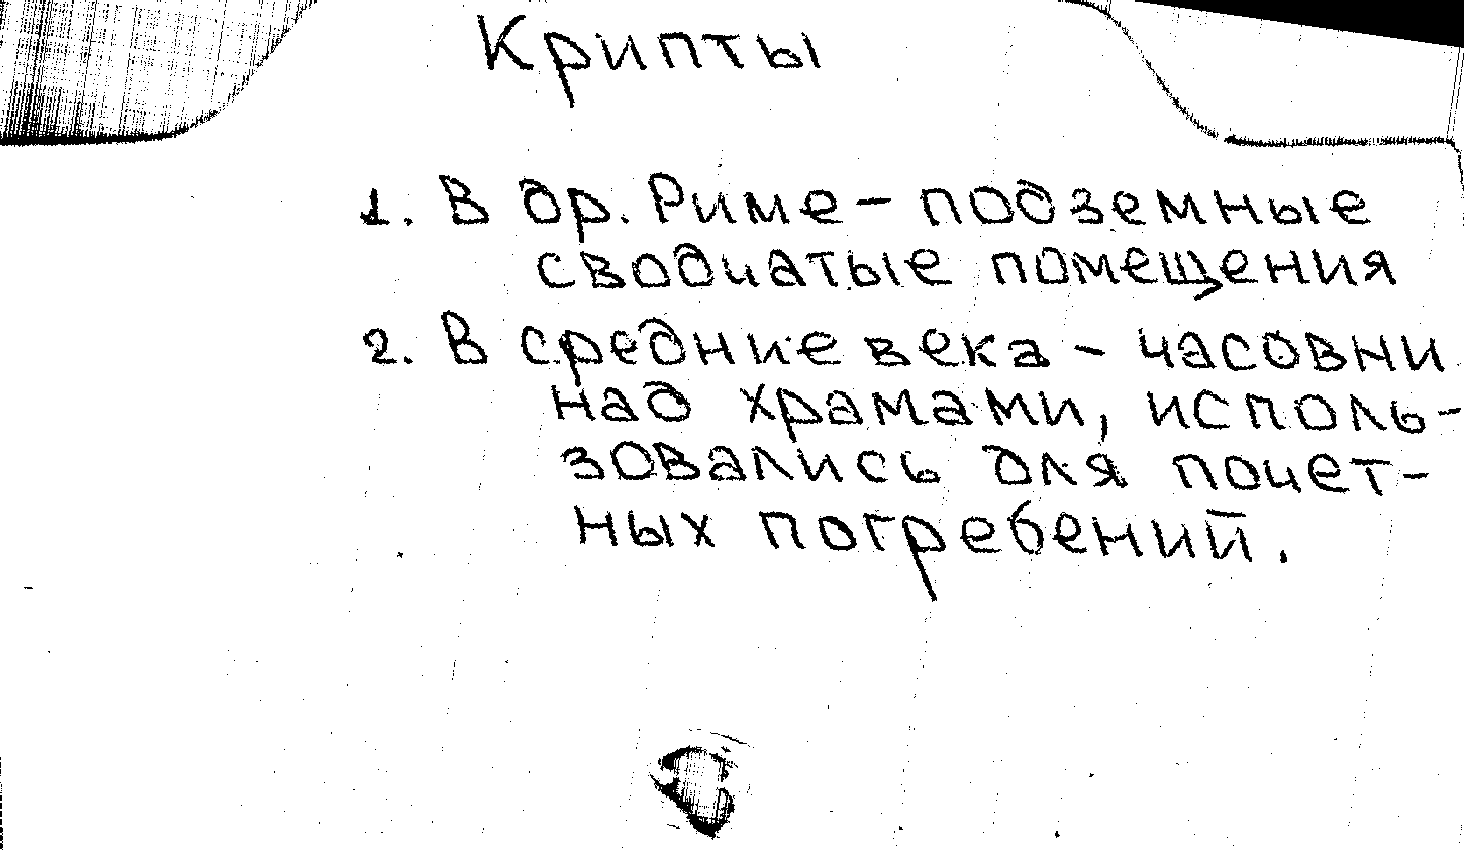 Крипты
1. В др. Риме – подземные
сводчатые помещения
2. В средние века – часовни
над храмами, исполь-
зовались для почет-
ных погребений.